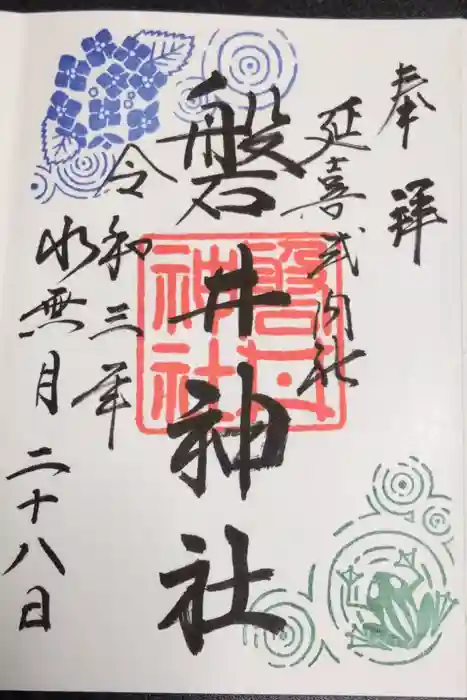 奉拝
延喜式内社
磐井神社
令和三年
水無月二十八日
磐井
神社